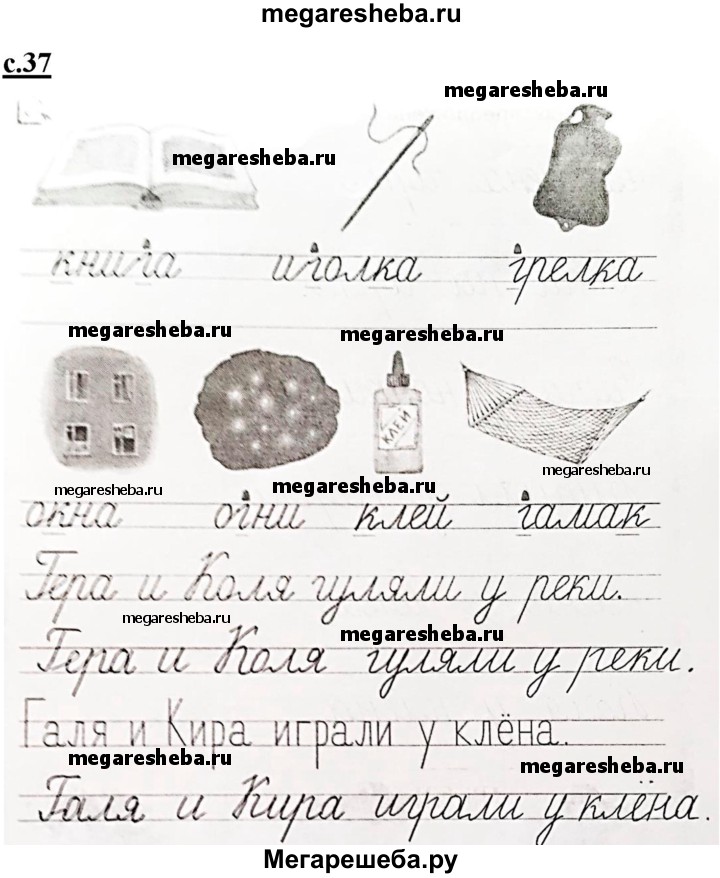 megaresheba.ru
с.37
megaresheba.ru
megaresheba.ru
книга иголка грелка
megaresheba.ru megaresheba.ru
КЛЕЙ
megaresheba.ru
megaresheba.ru megaresheba.ru
окна огни клей гамак
Гера и Коля гуляли у реки.
megaresheba.ru megaresheba.ru
Гера и Коля гуляли у реки.
Галя и Кира играли у клёна.
megaresheba.ru megaresheba.ru
Галя и Кира играли у клёна.
Мегарешеба.ру